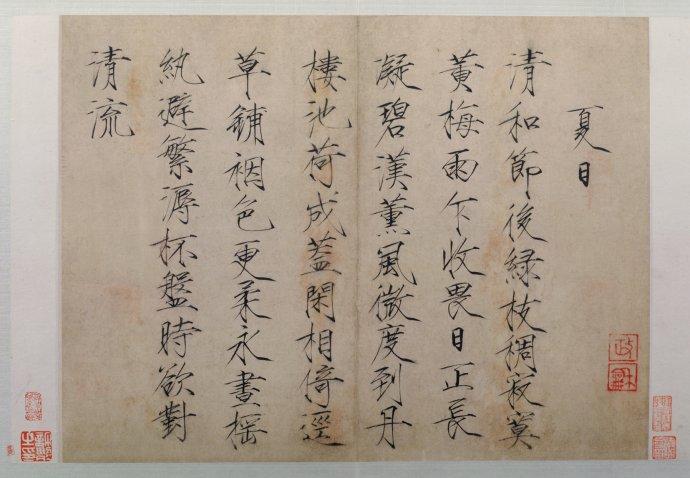 夏日
清和節後綠枝稠寂莫
黃梅雨乍收畏日正長
凝碧漢薰風微度到丹
樓池荷成蓋閑相倚逕
草鋪裀色更柔永晝搖
紈避繁溽杯盤時欲對
清流
政龢